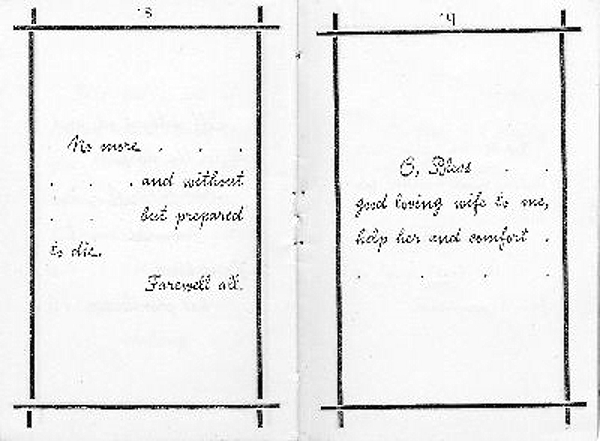 18
No more . . .
. . . and without
. . . but prepared
to die.
Farewell all.
19
O, Bless . .
good loving wife to me,
help her and comfort .
. . . .